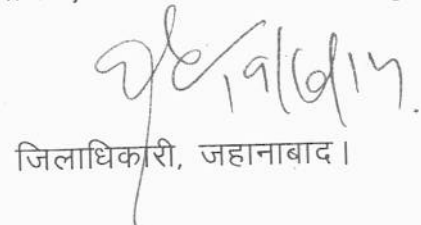 19/6/14.
जिलाधिकारी, जहानाबाद।